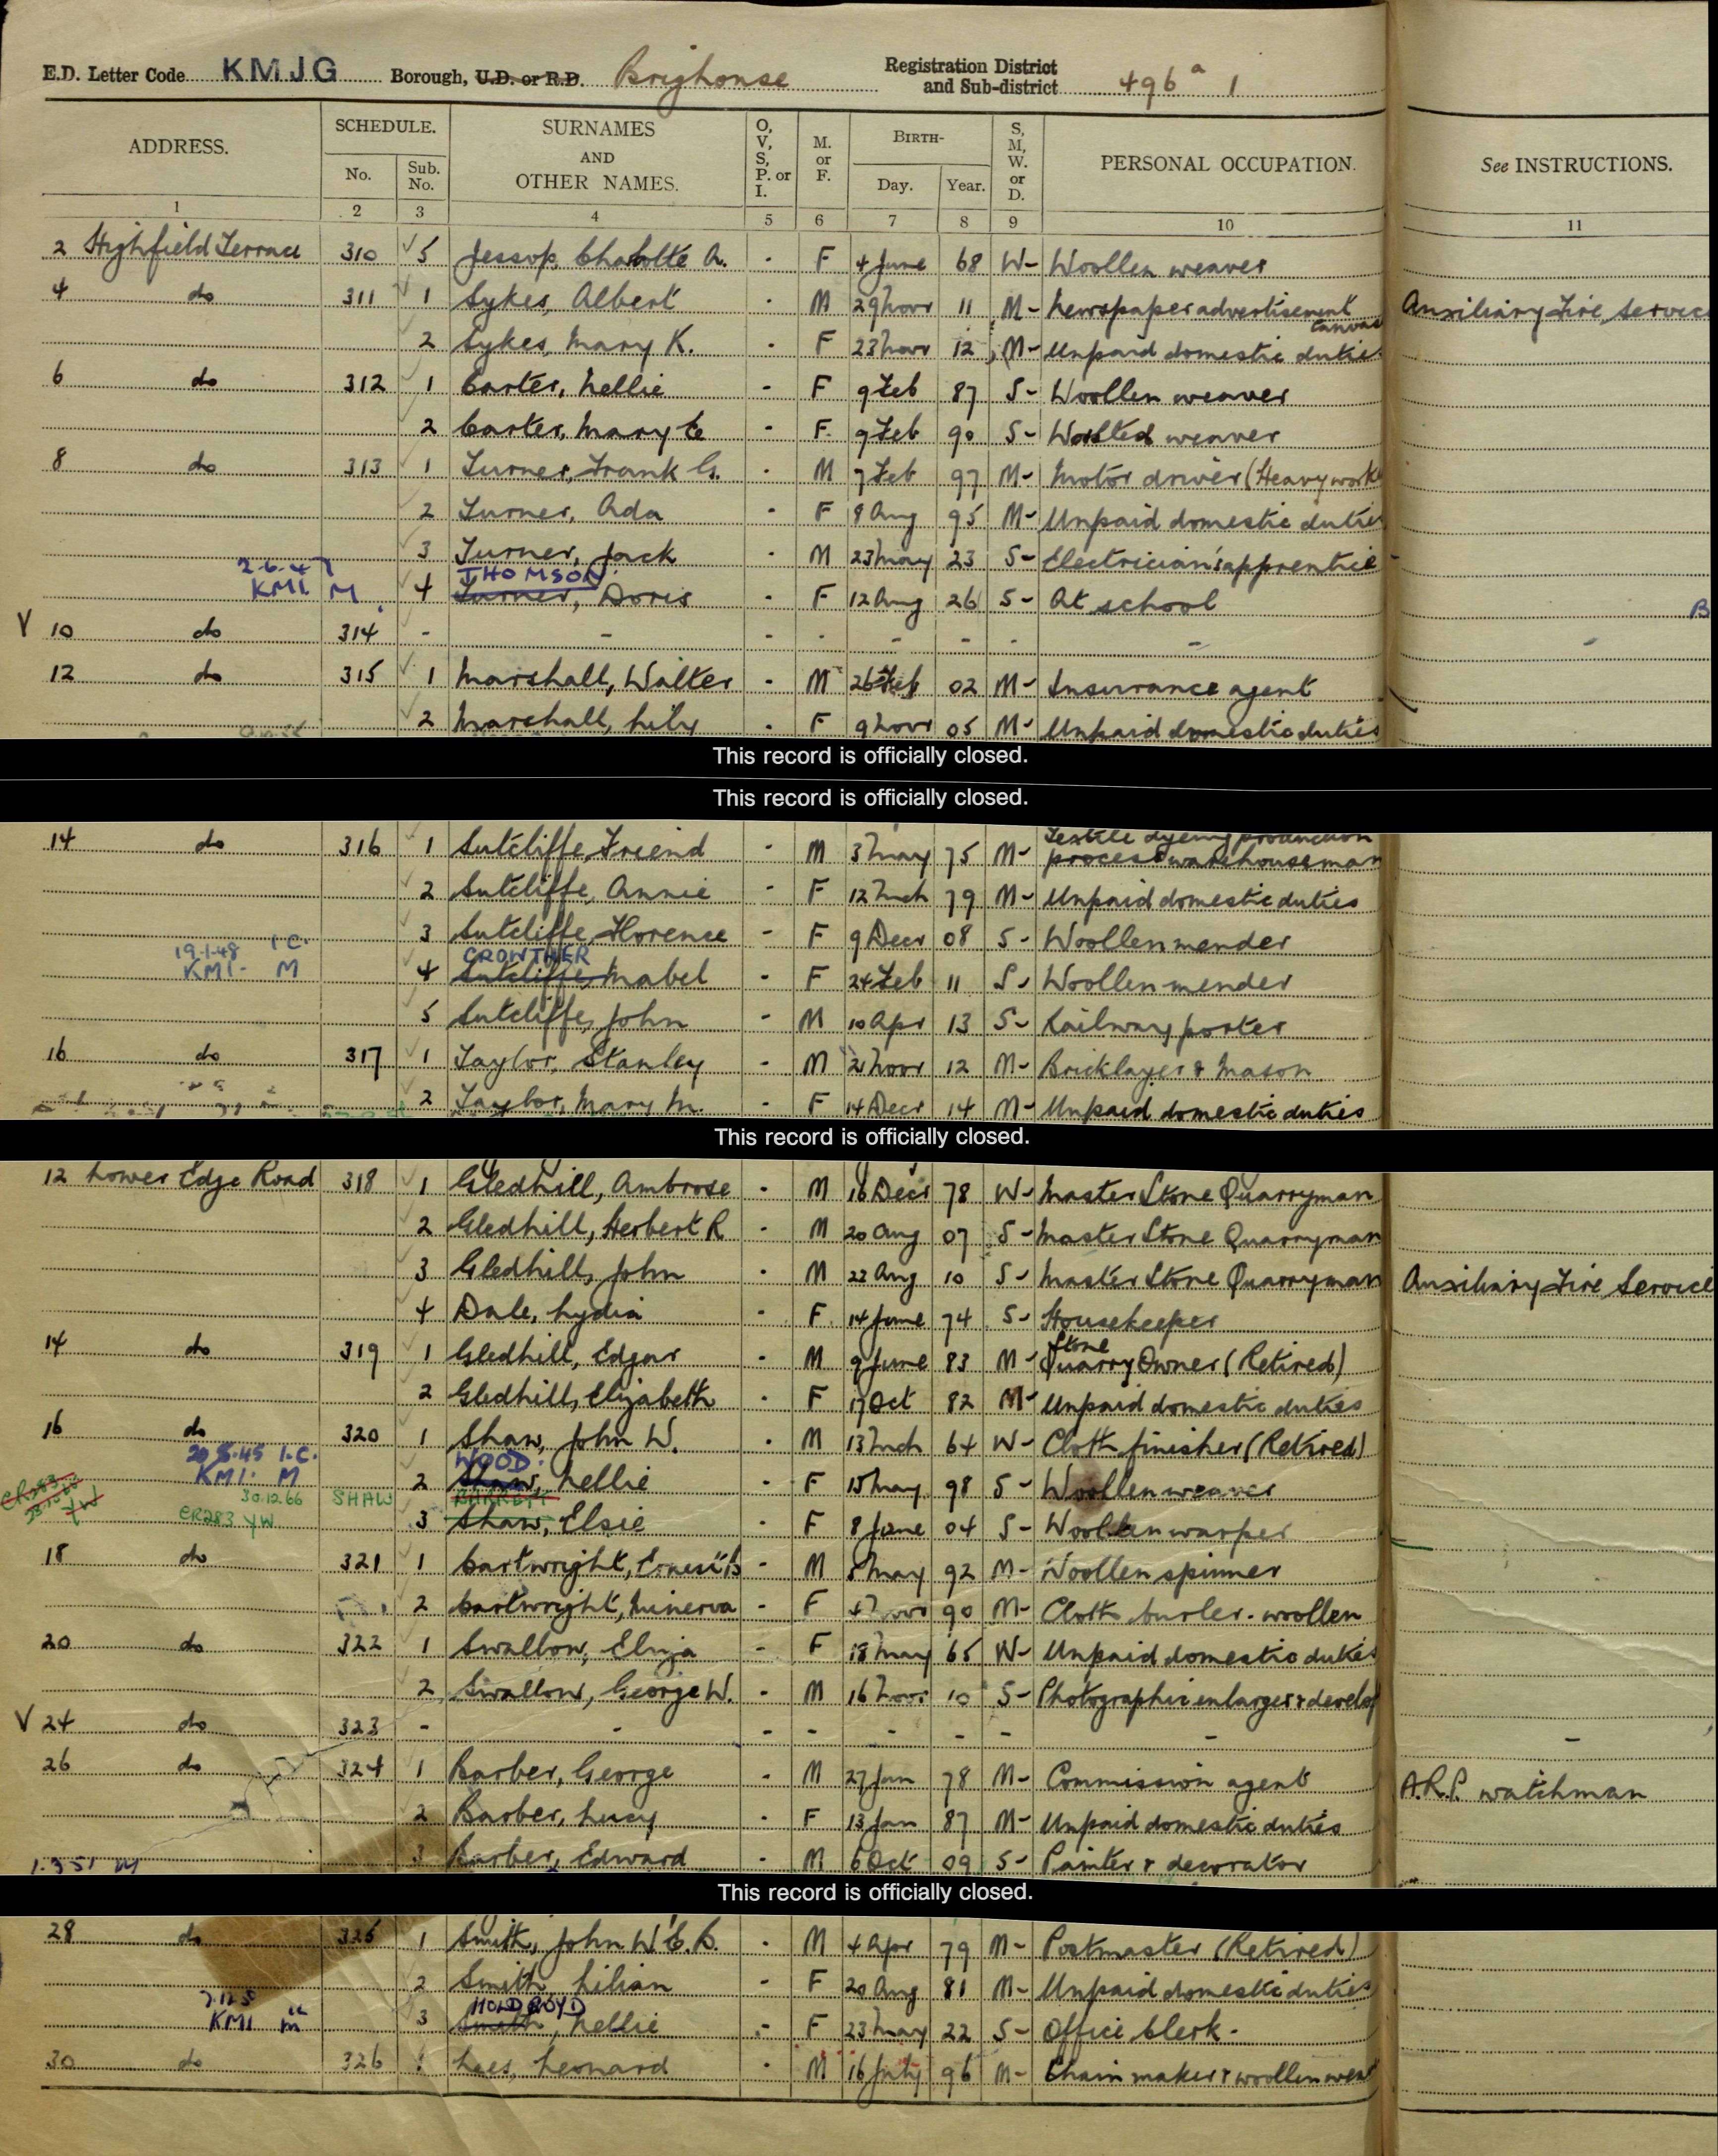 E.D. Letter Code KMJG Borough, U.D. or R.D. Brighouse Registration District and Sub-district 496ᵃ 1
ADDRESS. SCHEDULE. No. Sub. No. SURNAMES AND OTHER NAMES. O, V, S, P. or I. M. or F. BIRTH- Day. Year. S, M, W. or D. PERSONAL OCCUPATION. See INSTRUCTIONS.
1 2 3 4 5 6 7 8 9 10 11
2 Highfield Terrace 310 5 Jessop, Charlotte A. . F 4 June 68 W- Woollen weaver
4 do 311 1 Sykes, Albert . M 29 Novr 11 M- Newspaper advertisement canvas Auxiliary Fire Service
2 Sykes, Mary K. . F 23 12 M- Unpaid domestic duties
6 do 312 1 Carter, Nellie - F 9 Feb 87 S- Woollen weaver
2 Carter, Mary E - F. 9 Feb 90 S- Worsted weaver
8 do 313 1 Turner, Frank G. . M 7 Feb 97 M- Motor driver (Heavy work
2 Turner, Ada . F 8 Aug 95 M- Unpaid domestic duties
3 Turner, Jack . M 23 May 23 S- Electrician's apprentice
2.6.47 THOMSON
KMI M 4 Turner, Doris . F 12 Aug 26 S- At school B
V 10 do 314 - - - . - - - -
12 do 315 1 Marshall, Walter . M 26 Feb 02 M- Insurance agent
2 Marshall, Lily . F 9 Novr 05 M- Unpaid domestic duties
This record is officially closed.
This record is officially closed.
Textile dyeing production
14 do 316 1 Sutcliffe, Friend - M 3 May 75 M- process warehouseman
2 Sutcliffe, Annie - F 12 Mch 79 M- Unpaid domestic duties
3 Sutcliffe, Florence - F 9 Decr 08 S- Woollen mender
19.1.48 I.C. CROWTHER
KMI- M 4 Sutcliffe, Mabel - F 24 Feb 11 S- Woollen mender
5 Sutcliffe, John - M 10 Apr 13 S- Railway porter
16 do 317 1 Taylor, Stanley - M 21 Novr 12 M- Bricklayer & Mason
2 Taylor, Mary M. - F 14 Decr 14 M- Unpaid domestic duties
This record is officially closed.
12 Lower Edge Road 318 1 Gledhill, Ambrose . M 16 Decr 78 W- Master Stone Quarryman
2 Gledhill, Herbert R . M 20 Aug 07 S- Master Stone Quarryman
3 Gledhill, John . M 22 Aug 10 S- Master Stone Quarryman Auxiliary Fire Service
4 Dale, Lydia . F. 14 June 74 S- Housekeeper
14 do 319 1 Gledhill, Edgar . M 9 June 83 M- Stone Quarry Owner (Retired)
2 Gledhill, Elizabeth . F 17 Oct 82 M- Unpaid domestic duties
16 do 320 1 Shaw, John W. . M 13 Mch 64 W- Cloth finisher (Retired)
20.5.45 I.C. WOOD
KMI. M 2 Shaw, Nellie - F 15 May 98 S- Woollen weaver
CR283 30.12.66 SHAW
CR283 YW 3 Shaw, Elsie - F 8 June 04 S- Woollen warper
18 do 321 1 Cartwright, Ernest - M 8 May 92 M- Woollen spinner
2 Cartwright, Minerva - F 4 Novr 90 M- Cloth burler - woollen
20 do 322 1 Swallow, Eliza - F 18 May 65 W- Unpaid domestic duties
2 Swallow, George W. - M 16 Novr 10 S- Photographic enlarger & develop
V 24 do 323 - - - - - - - - -
26 do 324 1 Barber, George . M 27 Jan 78 M- Commission agent A.R.P. watchman
2 Barber, Lucy . F 13 Jan 87 M- Unpaid domestic duties
1.3.51 M 3 Barber, Edward . M 6 Oct 09 S- Painter & decorator
This record is officially closed.
28 do 325 1 Smith, John W. . M 4 Apr 79 M- Postmaster (Retired)
2 Smith Lilian - F 20 Aug 81 M- Unpaid domestic duties
HOLDROYD
KMI M 3 Smith, Nellie - F 23 May 22 S- Office Clerk -
30 do 326 1 Lees, Leonard . M 16 July 96 M- Chain maker & woollen